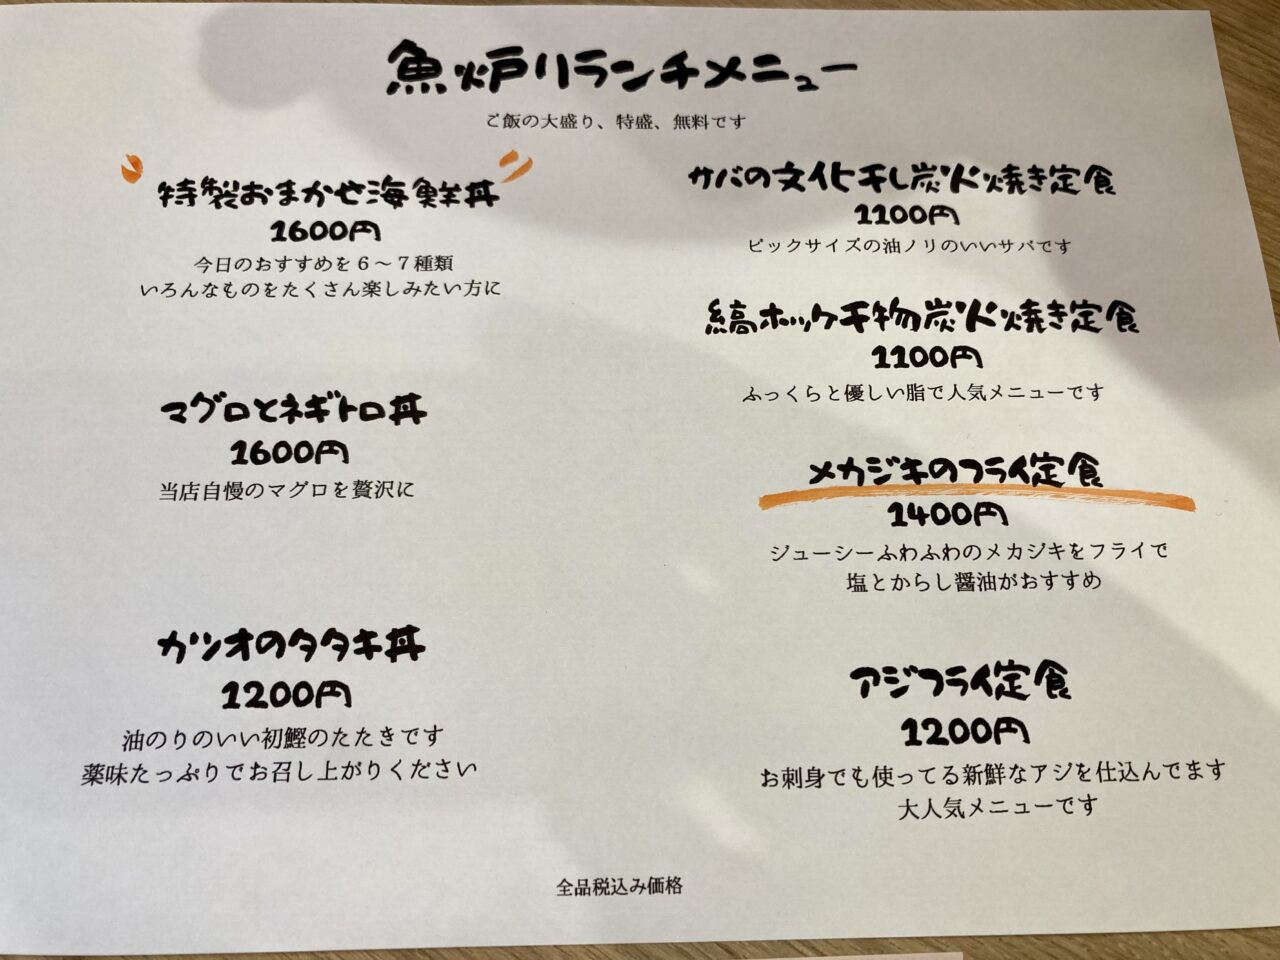 魚炉りランチメニュー
ご飯の大盛り、特盛、無料です
特製おまかせ海鮮丼
1600円
今日のおすすめを６～７種類
いろんなものをたくさん楽しみたい方に
マグロとネギトロ丼
1600円
当店自慢のマグロを贅沢に
カツオのタタキ丼
1200円
油のりのいい初鰹のたたきです
薬味たっぷりでお召し上がりください
サバの文化干し炭火焼き定食
1100円
ビックサイズの油ノリのいいサバです
縞ホッケ干物炭火焼き定食
1100円
ふっくらと優しい脂で人気メニューです
メカジキのフライ定食
1400円
ジューシーふわふわのメカジキをフライで
塩とからし醤油がおすすめ
アジフライ定食
1200円
お刺身でも使ってる新鮮なアジを仕込んでます
大人気メニューです
全品税込み価格